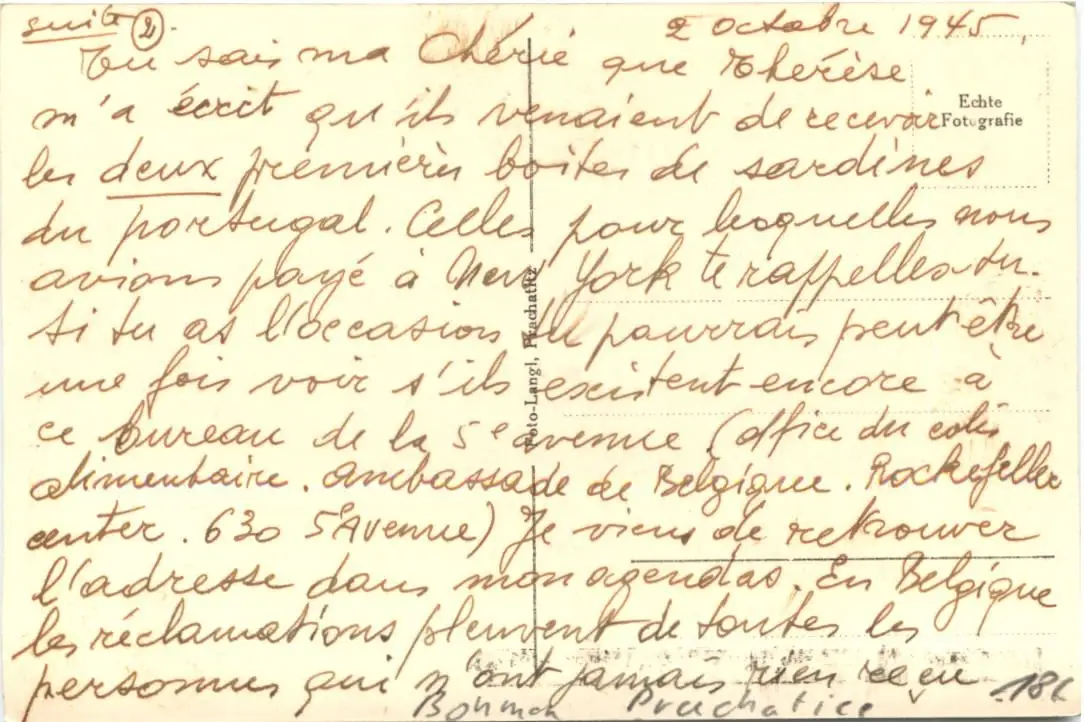 suite (2).
2 octobre 1945,
Tu sais ma Chérie que Thérèse
m'a écrit qu'ils venaient de recevoir
les deux premières boites de sardines
du portugal. Celles pour lesquelles nous
avions payé à New York te rappelles-tu.
Si tu as l'occasion tu pourrais peut être
une fois voir s'ils existent encore à
ce bureau de la 5e avenue (office du colis
alimentaire. Ambassade de Belgique. Rockefeller
center. 630 5e Avenue) Je viens de retrouver
l'adresse dans mon agendas. En Belgique
les réclamations pleuvent de toutes les
personnes qui n'ont jamais rien reçu
Echte
Fotografie
Foto-Langl, Prachatitz
Prachatice